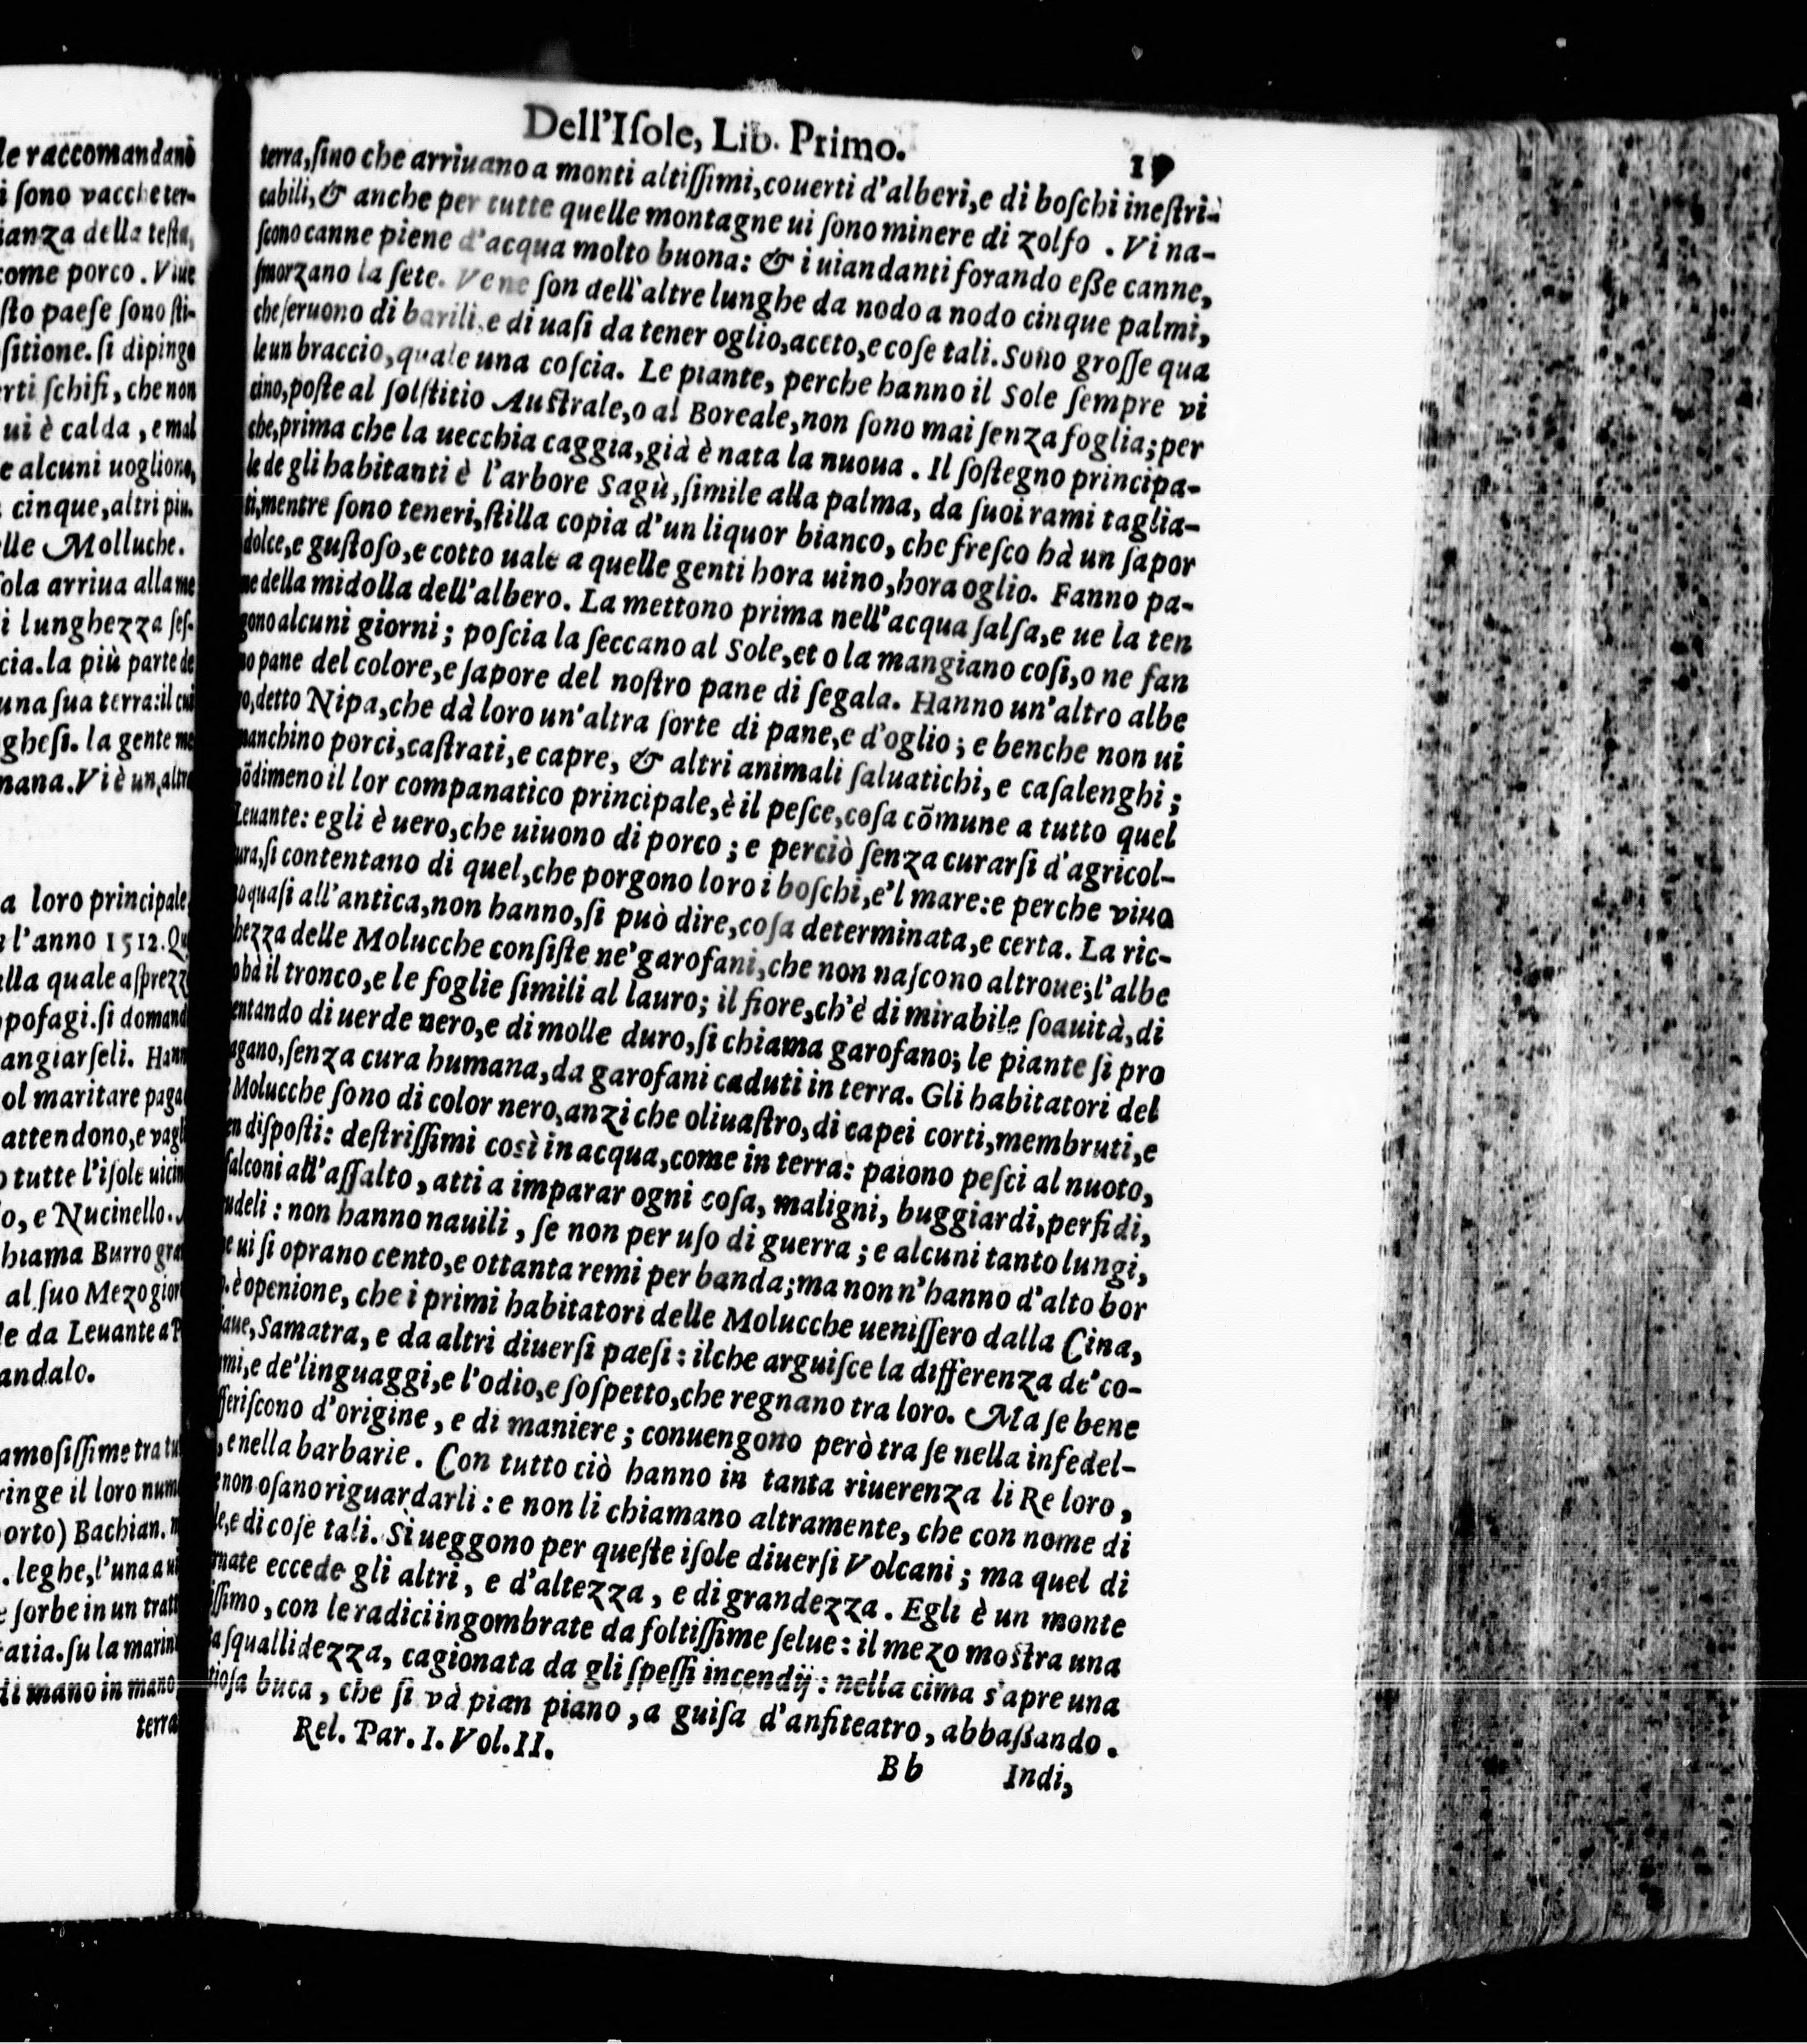 le raccomandanò
i ſono vacche ter-
ianza della teſta,
come porco. Viue
ſto paeſe ſono ſti-
ſitione. ſi dipingo
rti ſchifi, che non
ui è calda, e mal
e alcuni uogliono,
cinque, altri piu.
lle Molluche.
ſola arriua alla me
i lunghezza ſeſ-
cia. la più parte de
una ſua terra: il cui
gheſi. la gente me
mana. Vi è un, altro
a loro principale
l'anno 1512. Qu
lla quale aſprezz
pofagi. ſi domand
angiarſeli. Hann
ol maritare paga
attendono, e vagli
o tutte l'iſole uicin
o, e Nucinello.
hiama Burro gra
al ſuo Mezo gior
le da Leuante a P
andalo.
amoſiſſime tra tu
ringe il loro num
orto) Bachian. n
. leghe, l'una a ui
e ſorbe in un tratt
ratia. ſu la marin
di mano in mano
terra
Dell'Iſole, Lib. Primo. 19
terra, ſino che arriuano a monti altiſſimi, couerti d'alberi, e di boſchi ineſtri-
cabili, & anche per tutte quelle montagne ui ſono minere di zolfo . Vi na-
ſcono canne piene d'acqua molto buona: & i uiandanti forando eſſe canne,
ſmorzano la ſete. Ve ne ſon dell'altre lunghe da nodo a nodo cinque palmi,
che ſeruono di barili, e di uaſi da tener oglio, aceto, e coſe tali. Sono groſſe qua
le un braccio, quale una coſcia. Le piante, perche hanno il Sole ſempre vi
cino, poſte al ſolſtitio Auſtrale, o al Boreale, non ſono mai ſenza foglia; per
che, prima che la uecchia caggia, già è nata la nuoua . Il ſoſtegno principa-
le de gli habitanti è l'arbore Sagù, ſimile alla palma, da ſuoi rami taglia-
ti, mentre ſono teneri, ſtilla copia d'un liquor bianco, che freſco hà un ſapor
dolce, e guſtoſo, e cotto uale a quelle genti hora uino, hora oglio. Fanno pa-
ne della midolla dell'albero. La mettono prima nell'acqua ſalſa, e ue la ten
gono alcuni giorni; poſcia la ſeccano al Sole, et o la mangiano coſi, o ne fan
no pane del colore, e ſapore del noſtro pane di ſegala. Hanno un'altro albe
ro, detto Nipa, che dà loro un'altra ſorte di pane, e d'oglio; e benche non ui
manchino porci, caſtrati, e capre, & altri animali ſaluatichi, e caſalenghi;
nõdimeno il lor companatico principale, è il peſce, coſa cõmune a tutto quel
Leuante: egli è uero, che uiuono di porco; e perciò ſenza curarſi d'agricol-
tura, ſi contentano di quel, che porgono loro i boſchi, e'l mare: e perche viuo
no quaſi all'antica, non hanno, ſi può dire, coſa determinata, e certa. La ric-
hezza delle Molucche conſiſte ne'garofani, che non naſcono altroue; l'albe
o hà il tronco, e le foglie ſimili al lauro; il fiore, ch'è di mirabile ſoauità, di
entando di uerde nero, e di molle duro, ſi chiama garofano; le piante ſi pro
agano, ſenza cura humana, da garofani caduti in terra. Gli habitatori del
Molucche ſono di color nero, anzi che oliuaſtro, di capei corti, membruti, e
en diſpoſti: deſtriſſimi così in acqua, come in terra: paiono peſci al nuoto,
falconi all'aſſalto, atti a imparar ogni coſa, maligni, buggiardi, perfidi,
udeli: non hanno nauili, ſe non per uſo di guerra; e alcuni tanto lungi,
e ui ſi oprano cento, e ottanta remi per banda; ma non n'hanno d'alto bor
. è openione, che i primi habitatori delle Molucche ueniſſero dalla Cina,
iaue, Samatra, e da altri diuerſi paeſi: ilche arguiſce la differenza de'co-
mi, e de'linguaggi, e l'odio, e ſoſpetto, che regnano tra loro. Ma ſe bene
fferiſcono d'origine, e di maniere; conuengono però tra ſe nella infedel-
, e nella barbarie. Con tutto ciò hanno in tanta riuerenza li Re loro,
e non oſano riguardarli: e non li chiamano altramente, che con nome di
le, e di coſe tali. Si ueggono per queſte iſole diuerſi Volcani; ma quel di
rnate eccede gli altri, e d'altezza, e di grandezza. Egli è un monte
iſſimo, con le radici ingombrate da foltiſſime ſelue: il mezo moſtra una
ta ſquallidezza, cagionata da gli ſpeſſi incendij: nella cima s'apre una
tioſa buca, che ſi và pian piano, a guiſa d'anfiteatro, abbaſſando.
Rel. Par. I. Vol. II. Bb Indi,